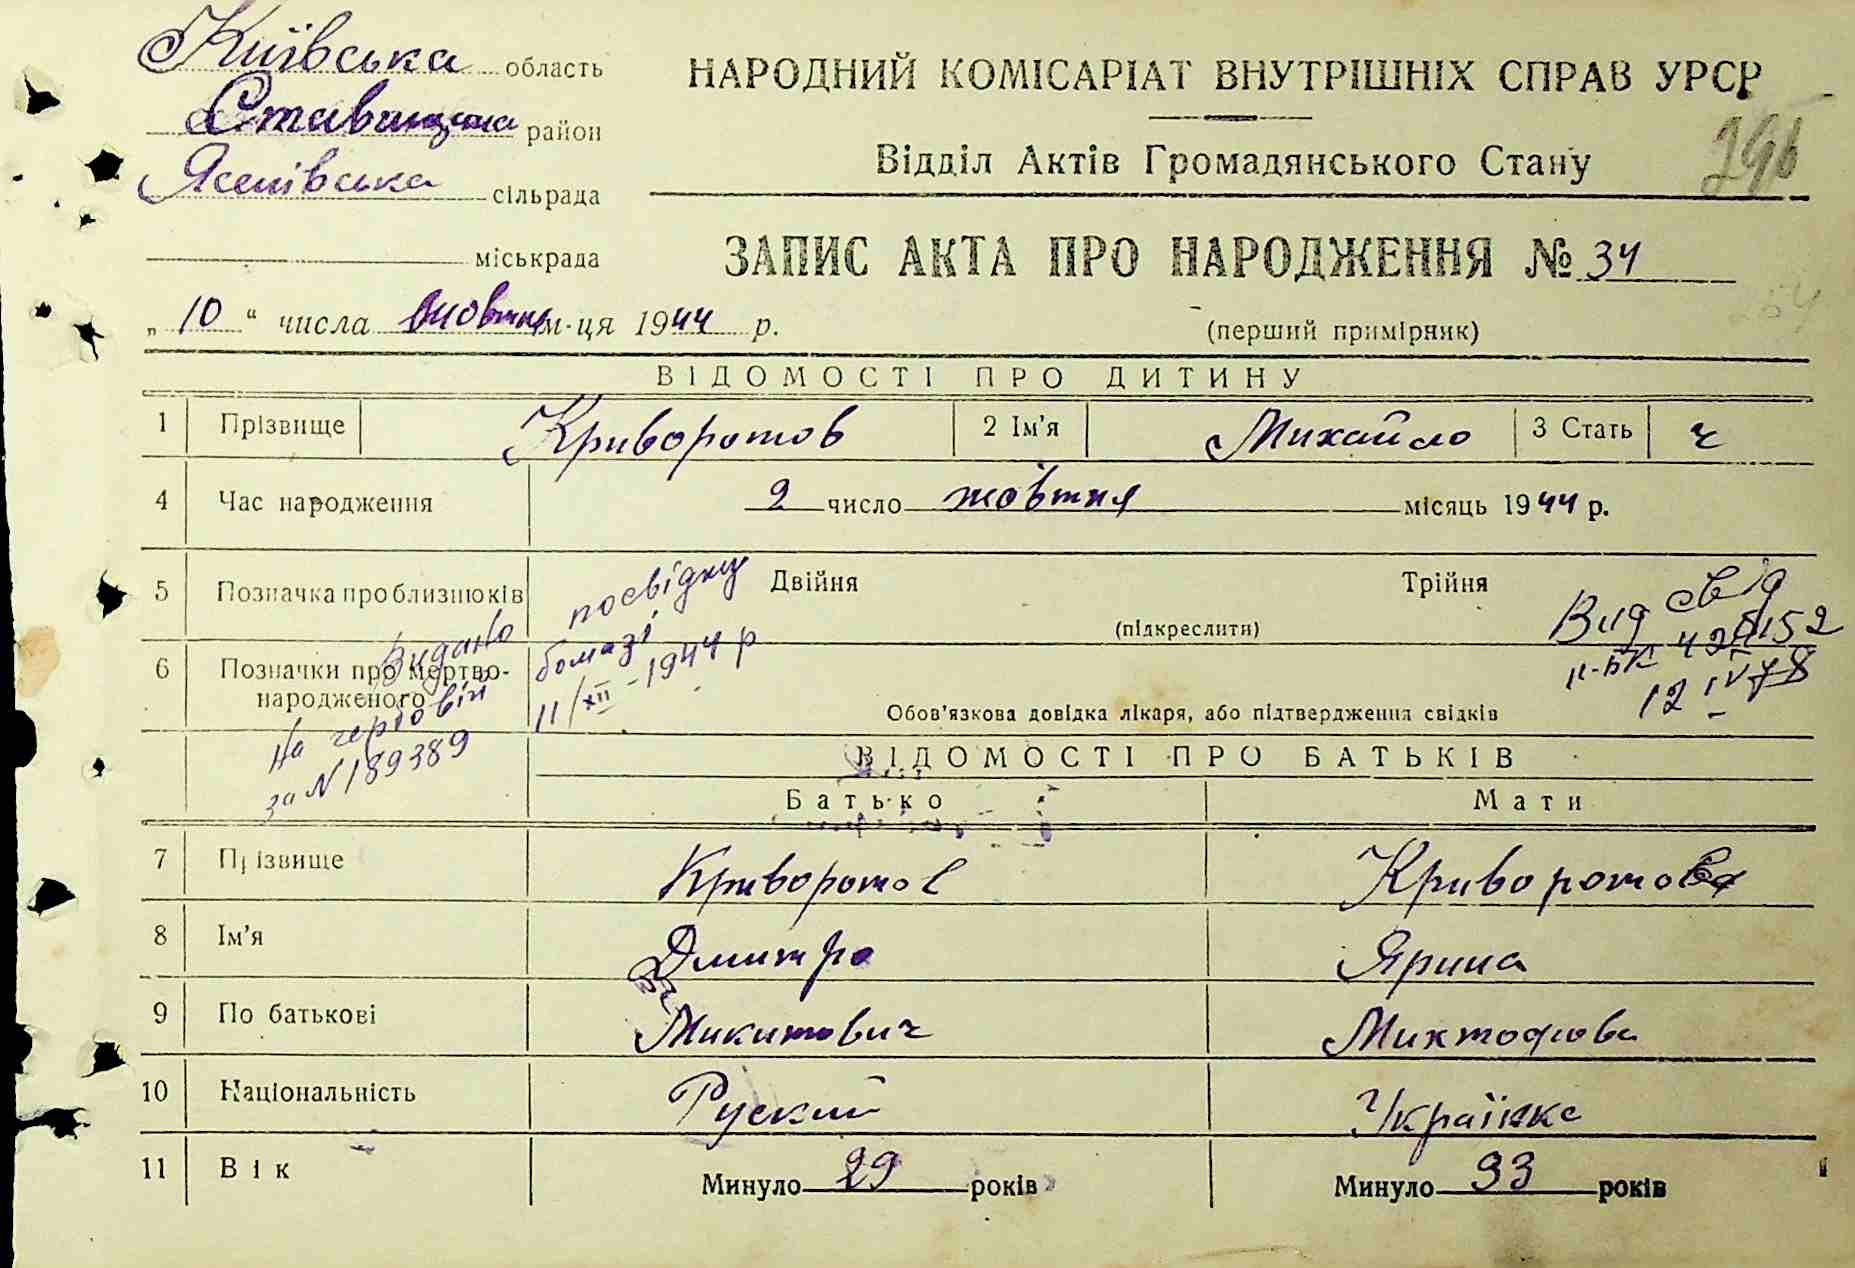 Київська область
Ставищанська район
Ясенівська сільрада
міськрада
НАРОДНИЙ КОМІСАРІАТ ВНУТРІШНІХ СПРАВ УРСР
Відділ Актів Громадянського Стану
ЗАПИС АКТА ПРО НАРОДЖЕННЯ № 34
„ 10 “ числа жовтня м-ця 1944 р.
(перший примірник)
ВІДОМОСТІ ПРО ДИТИНУ
1 Прізвище Криворотов 2 Ім'я Михайло 3 Стать ч
4 Час народження 2 число жовтня місяць 1944 р.
5 Позначка про близнюків Двійня Трійня
(підкреслити)
6 Позначки про мертвонародженого
Обов'язкова довідка лікаря, або підтвердження свідків
Видано посвідку
на гербовій бомазі
за N 189389 11/XII-1944 р
Вид свід
12 IV 78
ВІДОМОСТІ ПРО БАТЬКІВ
Батько Мати
7 Прізвище Криворотов Криворотова
8 Ім'я Дмитро Ярина
9 По батькові Микитович
10 Національність Руский Українка
11 Вік Минуло 29 років Минуло 33 років